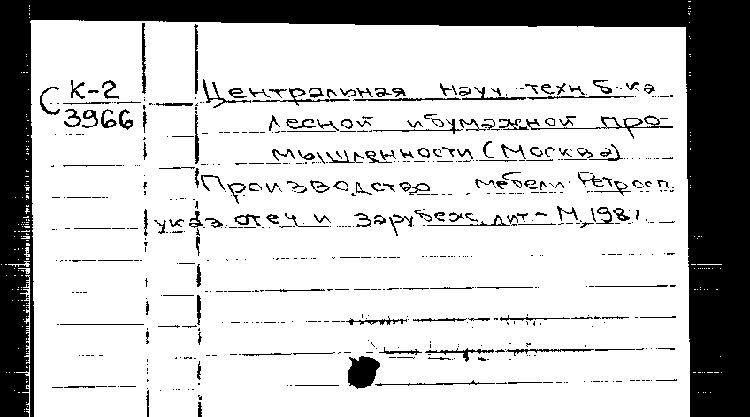 С К-2
3966
Центральная науч.-техн. б-ка
лесной и бумажной про-
мышленности (Москва)
Производство мебели. Ретросп.
указ. отеч. и зарубеж. лит-. М., 1981.